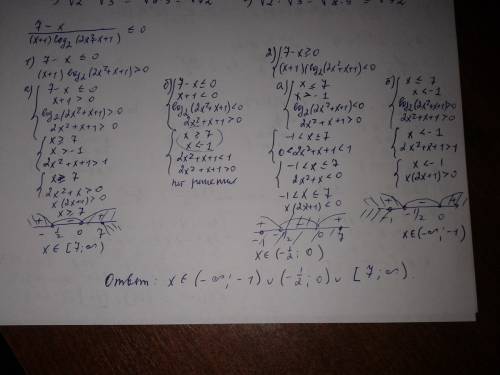 7 - x / (x+1) log₂(2x²+x+1) ≤ 0
1) 7 - x ≤ 0
(x+1) log₂(2x²+x+1) > 0
а) 7 - x ≤ 0
x + 1 > 0
log₂(2x²+x+1) > 0
2x²+x+1 > 0
x ≥ 7
x > -1
2x²+x+1 > 1
x ≥ 7
2x²+x > 0
x(2x+1) > 0
x ≥ 7
+ - +
-1/2 0 7
x ∈ [7; ∞)
б) 7 - x ≤ 0
x + 1 < 0
log₂(2x²+x+1) < 0
2x²+x+1 > 0
x ≥ 7
x < -1
2x²+x+1 < 1
2x²+x+1 > 0
нет решения
2) 7 - x ≥ 0
(x+1)(log₂(2x²+x+1) < 0
а) x ≤ 7
x > -1
log₂(2x²+x+1) < 0
2x²+x+1 > 0
-1 < x ≤ 7
0 < 2x²+x+1 < 1
-1 < x ≤ 7
2x²+x < 0
-1 < x ≤ 7
x(2x+1) < 0
-1 -1/2 0 7
x ∈ (-1/2; 0)
б) x ≤ 7
x < -1
log₂(2x²+x+1) > 0
2x²+x+1 > 0
x < -1
2x²+x+1 > 1
x < -1
x(2x+1) > 0
-1 -1/2 0
x ∈ (-∞; -1)
Ответ: x ∈ (-∞; -1) ∪ (-1/2; 0) ∪ [7; ∞).